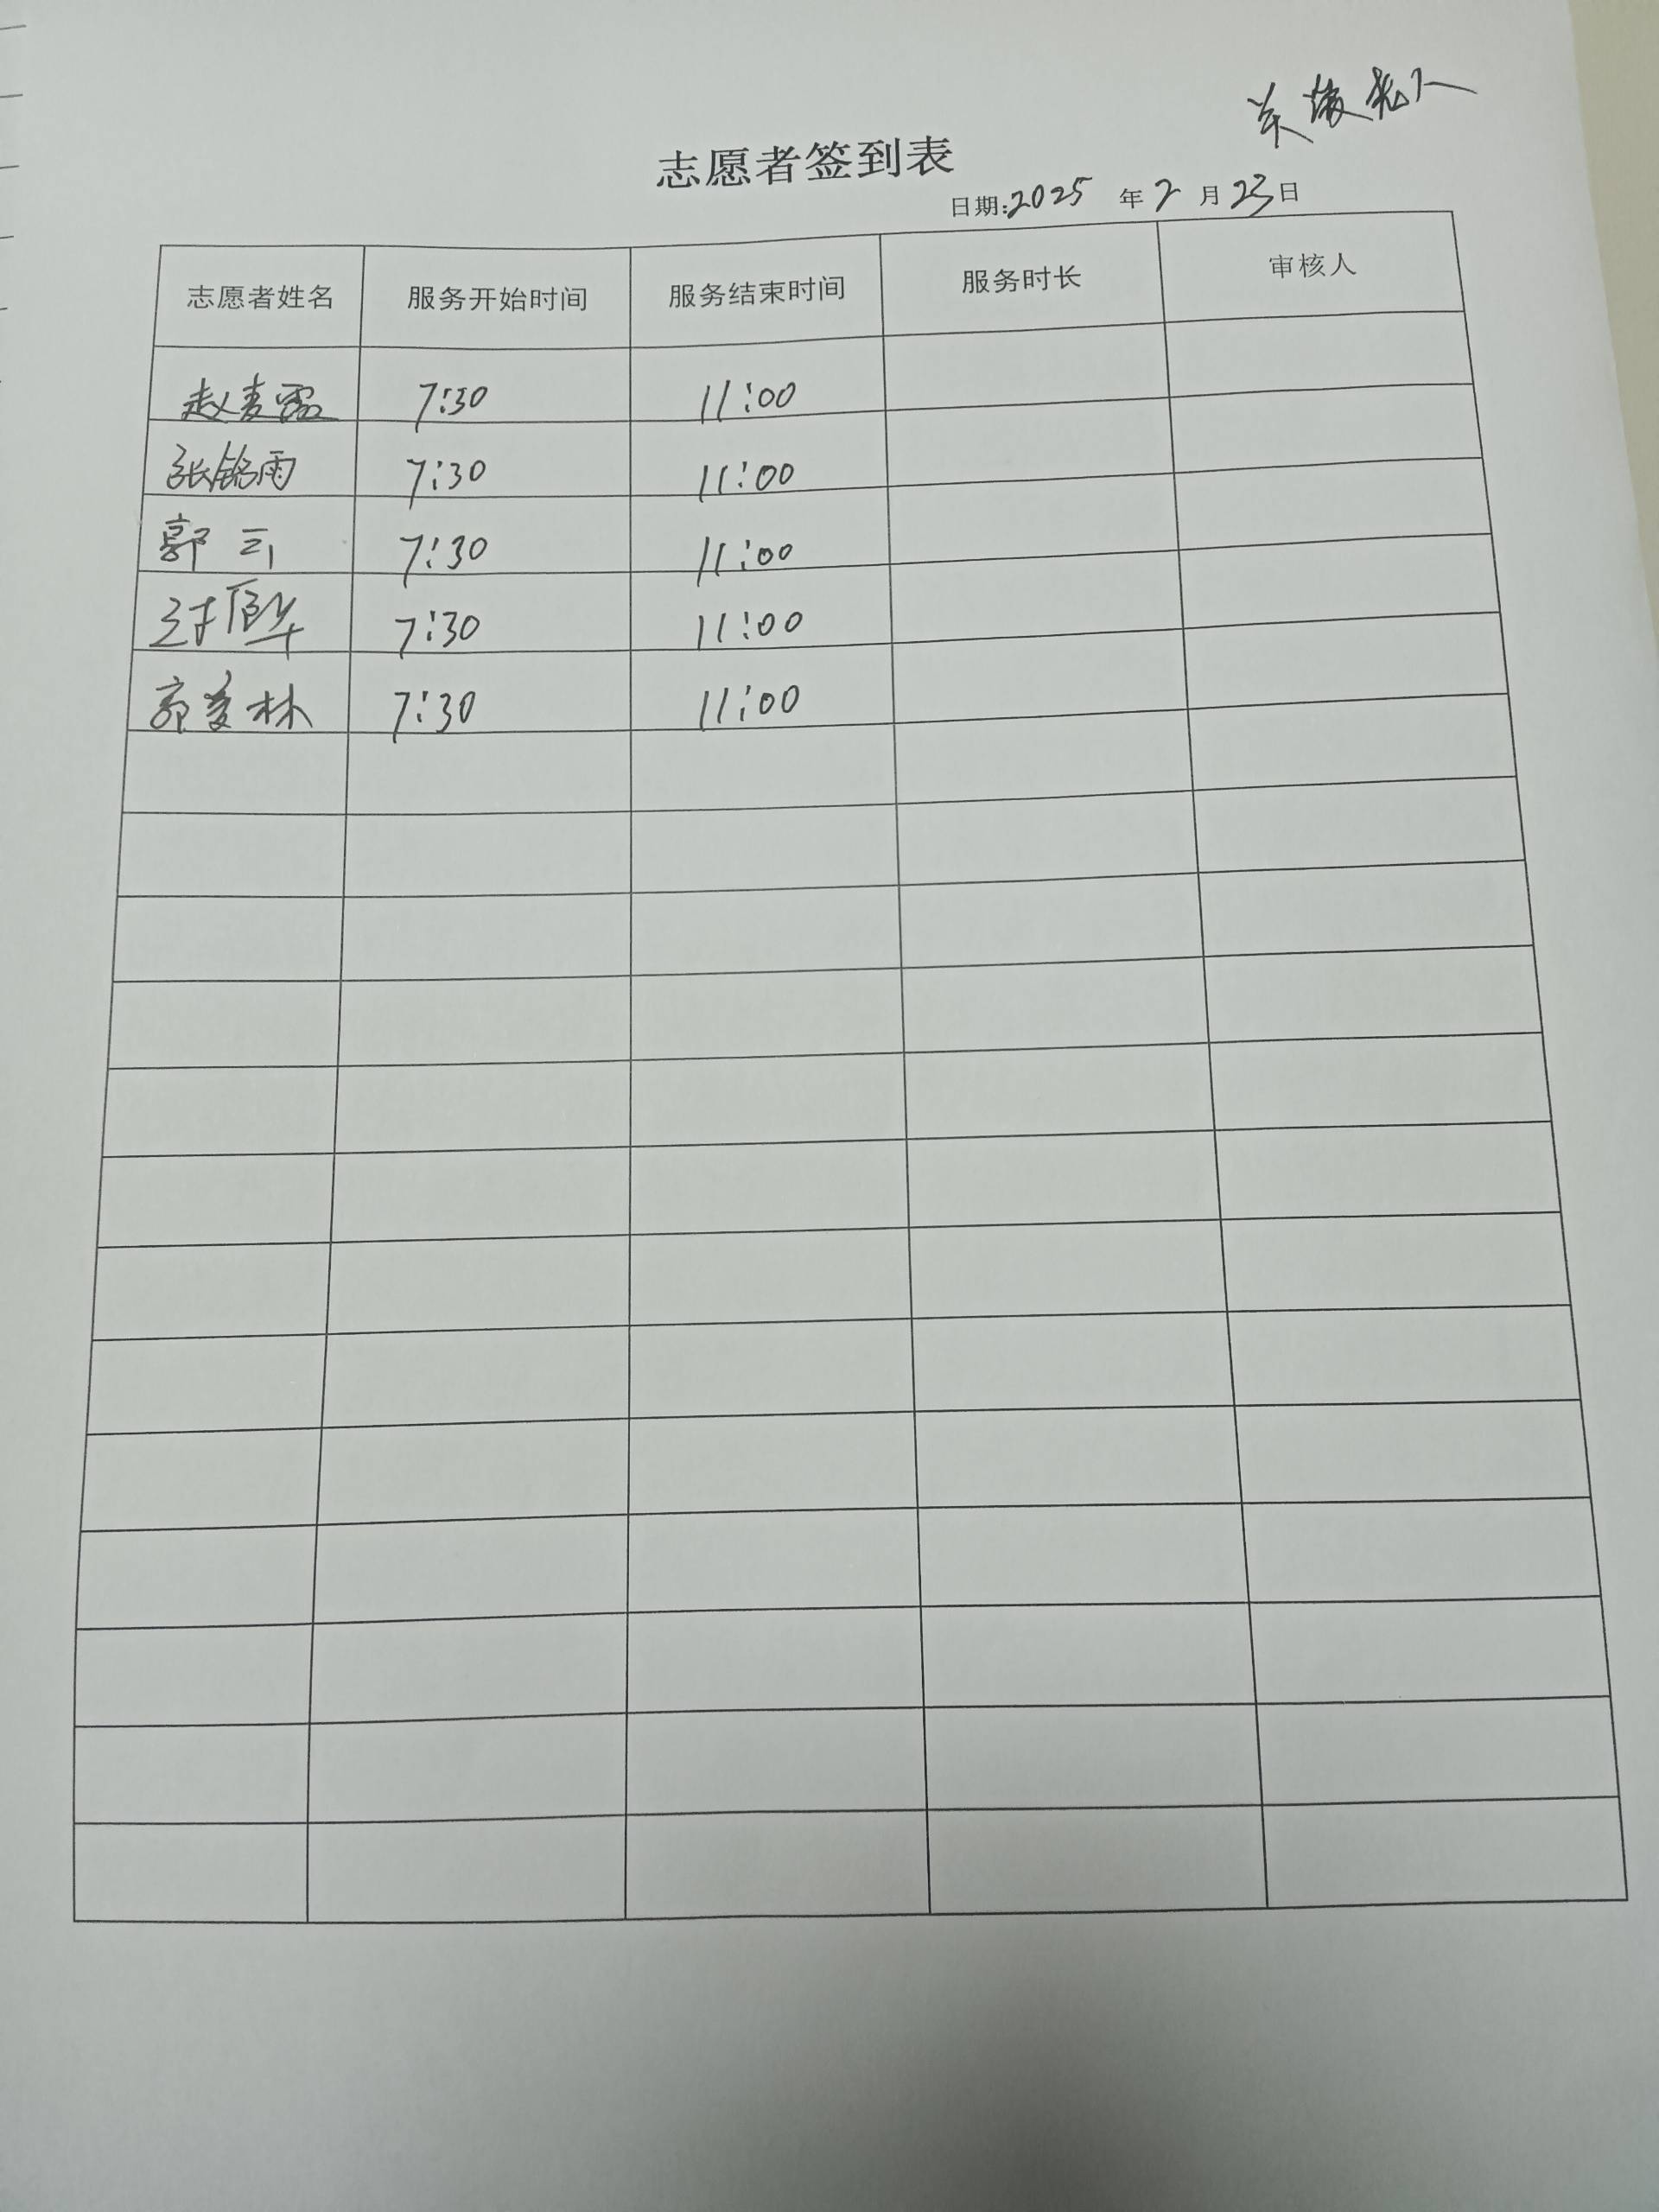 关爱老人
志愿者签到表
日期:2025 年 2 月 23 日
志愿者姓名 服务开始时间 服务结束时间 服务时长 审核人
赵麦霞 7:30 11:00
张铭雨 7:30 11:00
郭 7:30 11:00
7:30 11:00
郭爱林 7:30 11:00